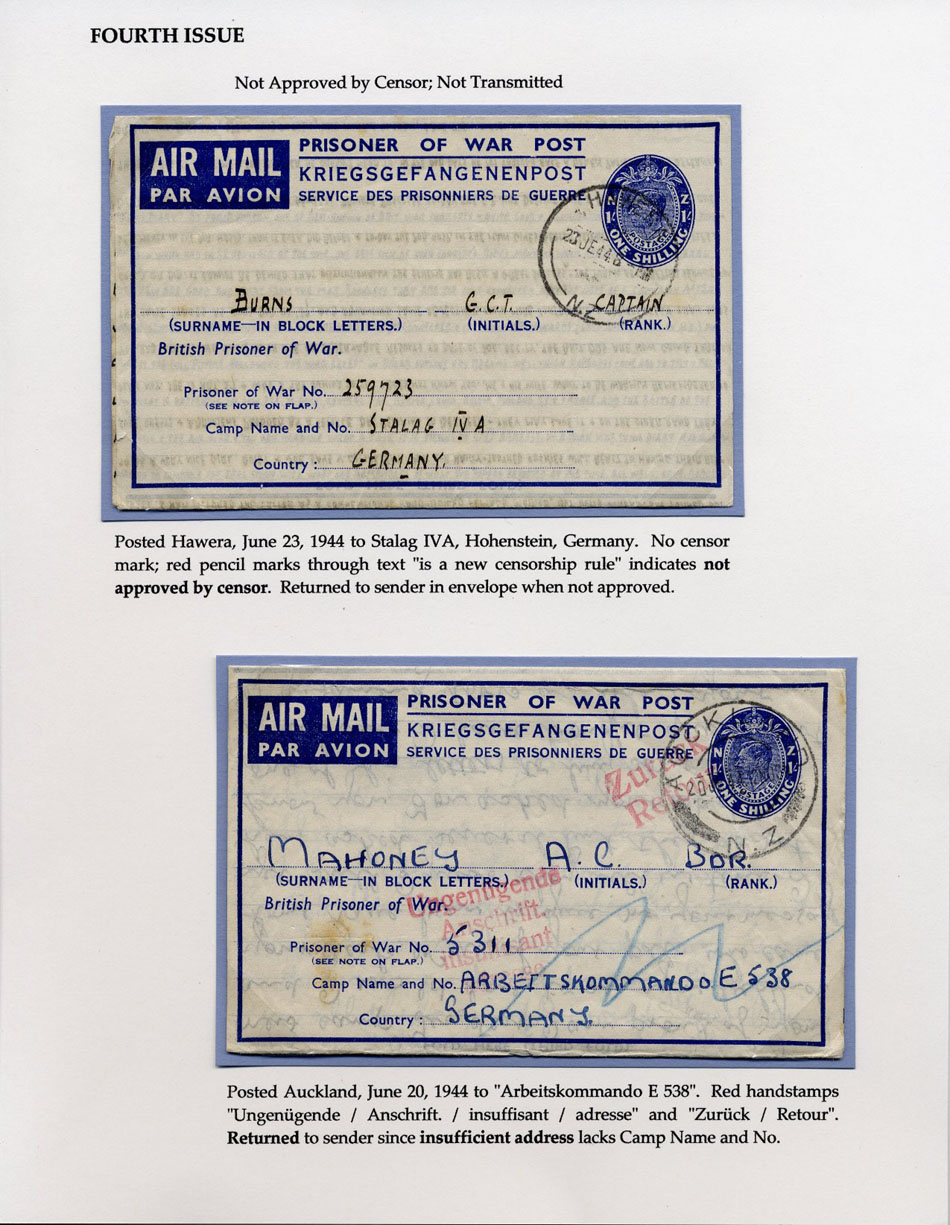 FOURTH ISSUE
Not Approved by Censor; Not Transmitted
AIR MAIL
PAR AVION
PRISONER OF WAR POST
KRIEGSGEFANGENENPOST
SERVICE DES PRISONNIERS DE GUERRE
N Z
1/- 1/-
POSTAGE
ONE SHILLING
23 JE 44
N.Z
BURNS G.C.T. CAPTAIN
(SURNAME—IN BLOCK LETTERS.) (INITIALS.) (RANK.)
British Prisoner of War.
Prisoner of War No. 259723
(SEE NOTE ON FLAP.)
Camp Name and No. STALAG IV A
Country: GERMANY.
Posted Hawera, June 23, 1944 to Stalag IVA, Hohenstein, Germany. No censor
mark; red pencil marks through text "is a new censorship rule" indicates not
approved by censor. Returned to sender in envelope when not approved.
AIR MAIL
PAR AVION
PRISONER OF WAR POST
KRIEGSGEFANGENENPOST
SERVICE DES PRISONNIERS DE GUERRE
Zurück
Retour
N Z
1/- 1/-
POSTAGE
ONE SHILLING
N.Z
MAHONEY A.C. BDR.
(SURNAME—IN BLOCK LETTERS.) (INITIALS.) (RANK.)
British Prisoner of War.
Ungenügende
Anschrift.
insuffisant
Prisoner of War No. 5311
(SEE NOTE ON FLAP.)
Camp Name and No. ARBEITSKOMMANDO E 538
Country: GERMANY.
Posted Auckland, June 20, 1944 to "Arbeitskommando E 538". Red handstamps
"Ungenügende / Anschrift. / insuffisant / adresse" and "Zurück / Retour".
Returned to sender since insufficient address lacks Camp Name and No.